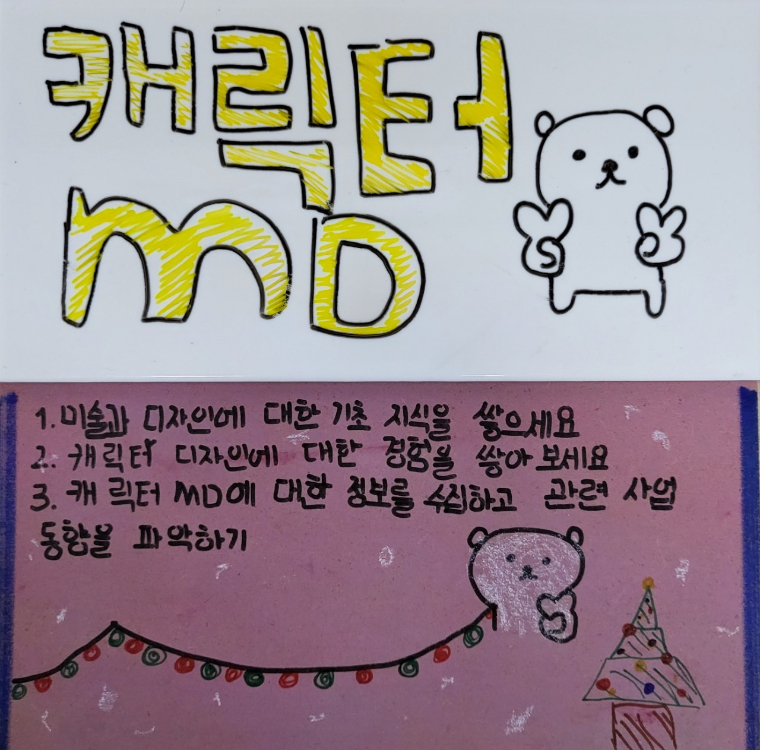 캐릭터
MD
1. 미술과 디자인에 대한 기초 지식을 쌓으세요
2. 캐릭터 디자인에 대한 경험을 쌓아 보세요
3. 캐릭터 MD에 대한 정보를 수집하고 관련 사업
동향을 파악하기